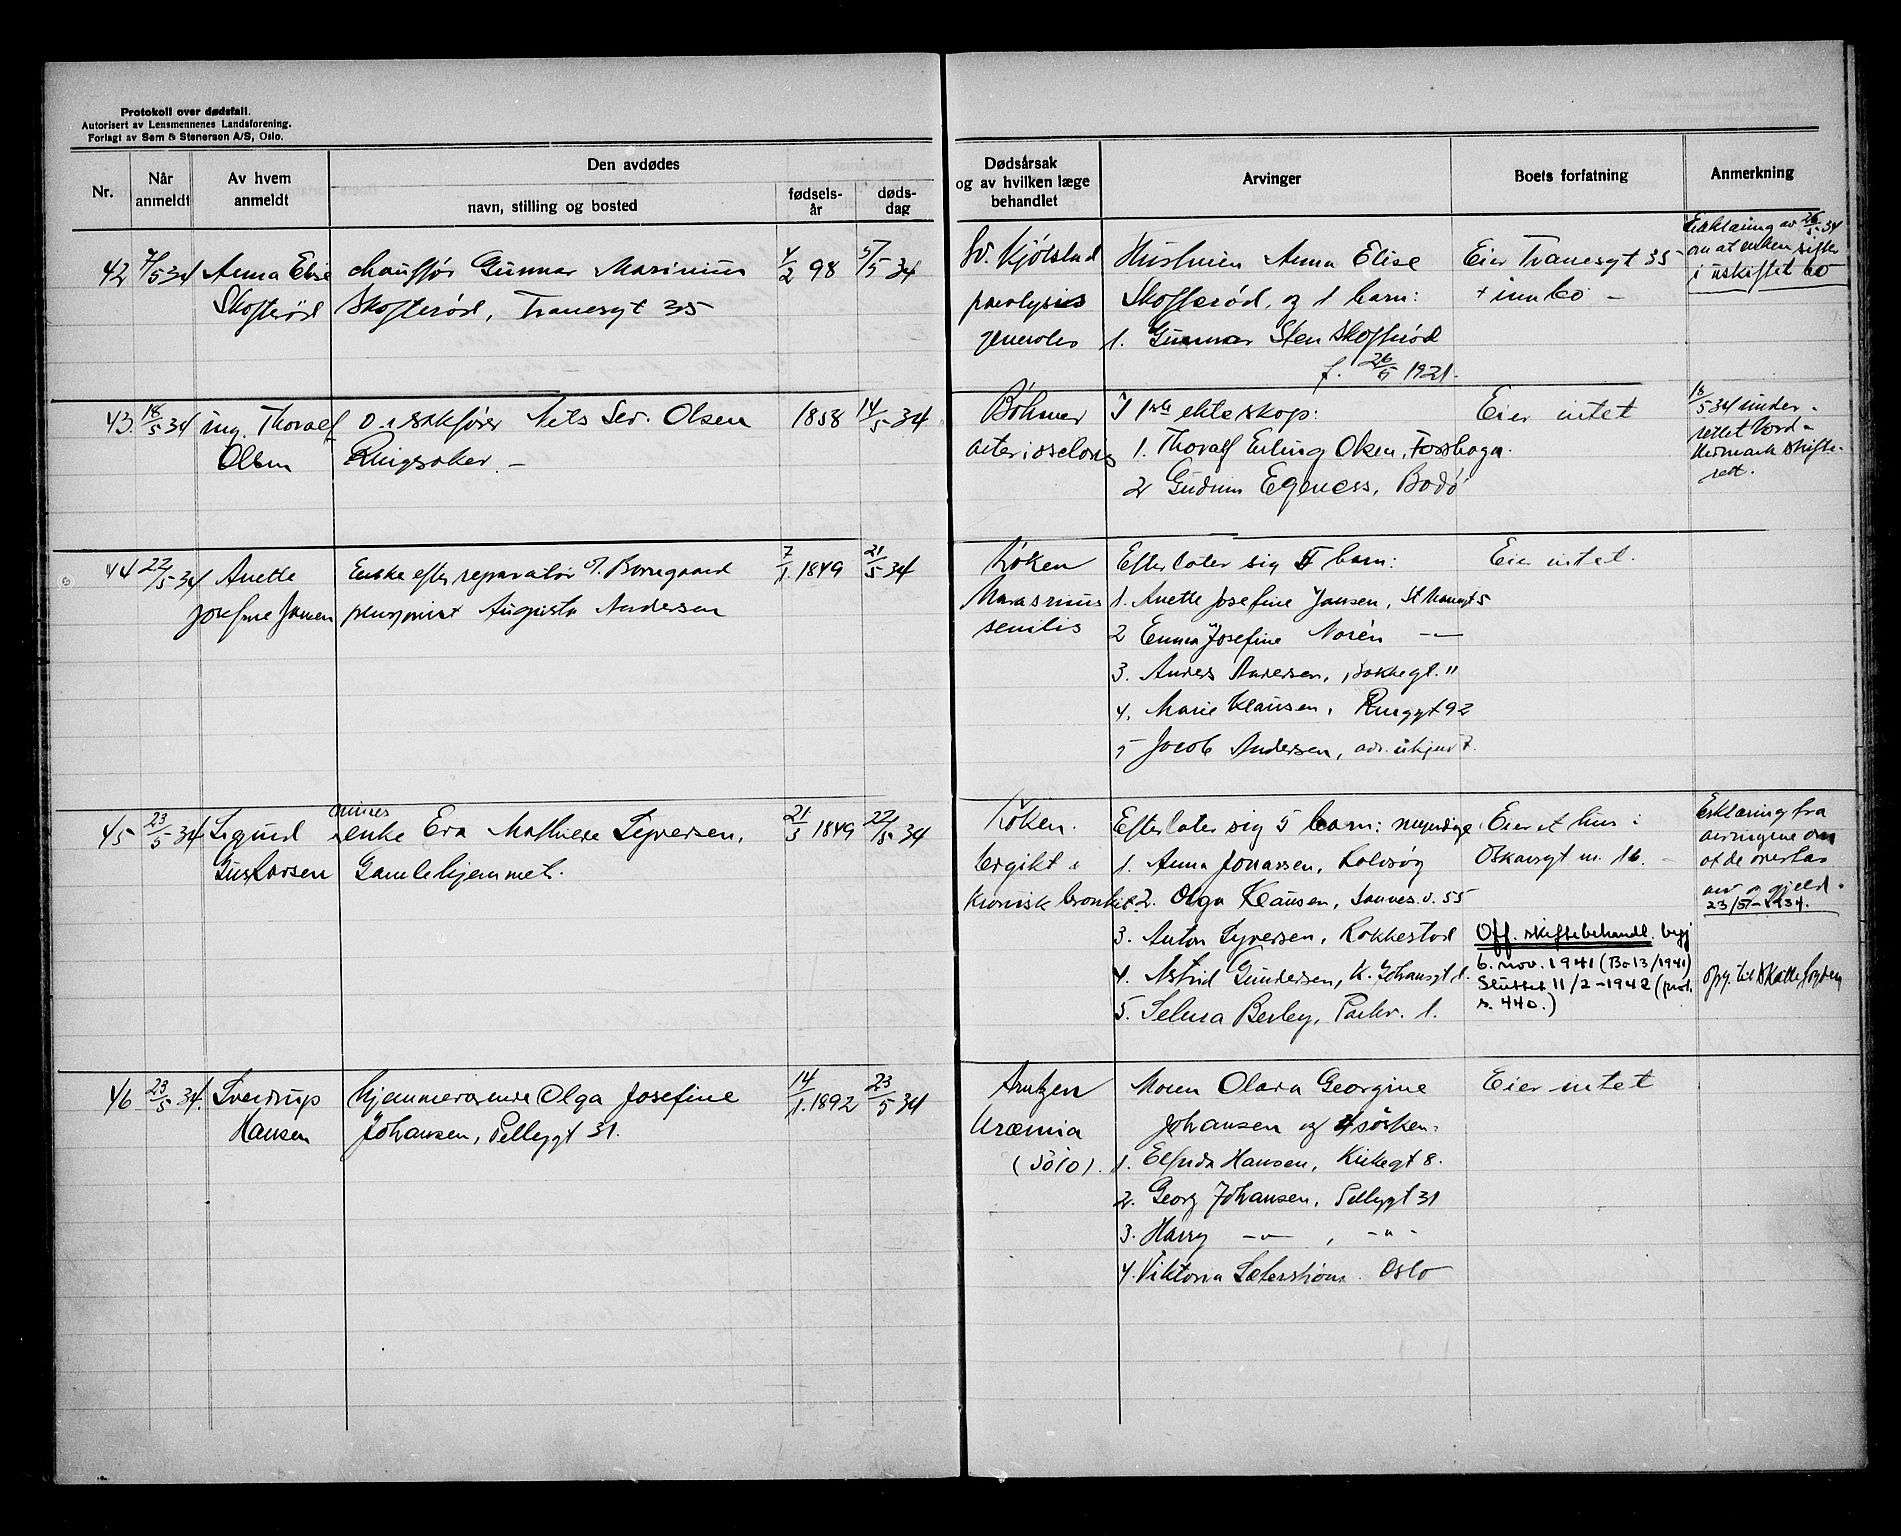 Protokoll over dødsfall.
Autorisert av Lensmennenes Landsforening.
Forlagt av Sem & Stenersen A/S, Oslo.
Nr.
Når anmeldt
Av hvem anmeldt
Den avdødes
navn, stilling og bosted
fødsels-år
døds-dag
Dødsårsak og av hvilken læge behandlet
Arvinger
Boets forfatning
Anmerkning
42 7/5 34 Anna Elise chauffør Gunnar Marinius 4/2 98 5/5 34
Skofterød Skofterød, Tranesgt 35
Sv. Kjølstad Hustruen Anna Elise Eier Tranesgt 35
paralysis Skofterød, og 1 barn: + innbo –
generales 1. Gunnar Sten Skofterød
f. 26/5 1921.
Erklæring av 26/5 34
om at enken sitter
i uskiftet bo
43. 18/5 34 ing. Thoralf o.r.sakfører Nils Sev. Olsen 1858 14/5 34
Olsen Ringsaker. –
Böhmer I 1ste ekteskap: Eier intet
1. Thoralf Erling Olsen,
2 Gudrun Egeness, Bodø
18/5 34 under-
rettet Nord-
Hedmark skifte-
rett.
44 22/5 34 Anette Enke efter reparatør 7/1. 1849 21/5 34
Josefine Jansen pensjonist Augusta Andersen
Köken Efterlater sig 5 barn: Eier intet.
Marasmus 1. Anette Josefine Jansen, St Mariegt 5
senilis 2 Emma Josefine Norén –"–
3. Anders Andersen, 11
4. Marie Klausen, 92
5 Jacob Andersen, adr. ukjendt.
45 23/5 34 Sigurd enke Eva Mathilde Syversen, 21/3 1849 22/5 34
Gus Larsen Gamlehjemmet.
Köken. Efterlater sig 5 barn: myndige Eier et hus i
1. Anna Jonassen, Rolvsøy Oskarsgt nr. 16. –
kronisk bronkit. 2. Olga Klausen, 55
3. Anton Syversen, Rakkestad
4. Astrid Gundersen, K. Johansgt 1.
5. Selma Berby, Parkv. 1.
Off. skiftebehandl. beg
6. nov. 1941 (Bo 13/1941)
Sluttet 11/2-1942 (prot.
s. 440.)
Erklæring fra
arvingene om
at de overtar
arv og gjeld.
23/5-1934.
opg. til skattefogden
46 23/5 34. Sverdrup hjemmeværende Olga Josefine 14/1. 1892 23/5 34
Hansen Johansen, Pellygt 31.
Arntzen Moren Olava Georgine Eier intet
Uræmia Johansen og 4 søsken:
1. Elfrida Hansen, Kirkegt 8.
2. Georg Johansen, Pellygt 31
3. Harry –"– , –"–
4. Viktoria Oslo